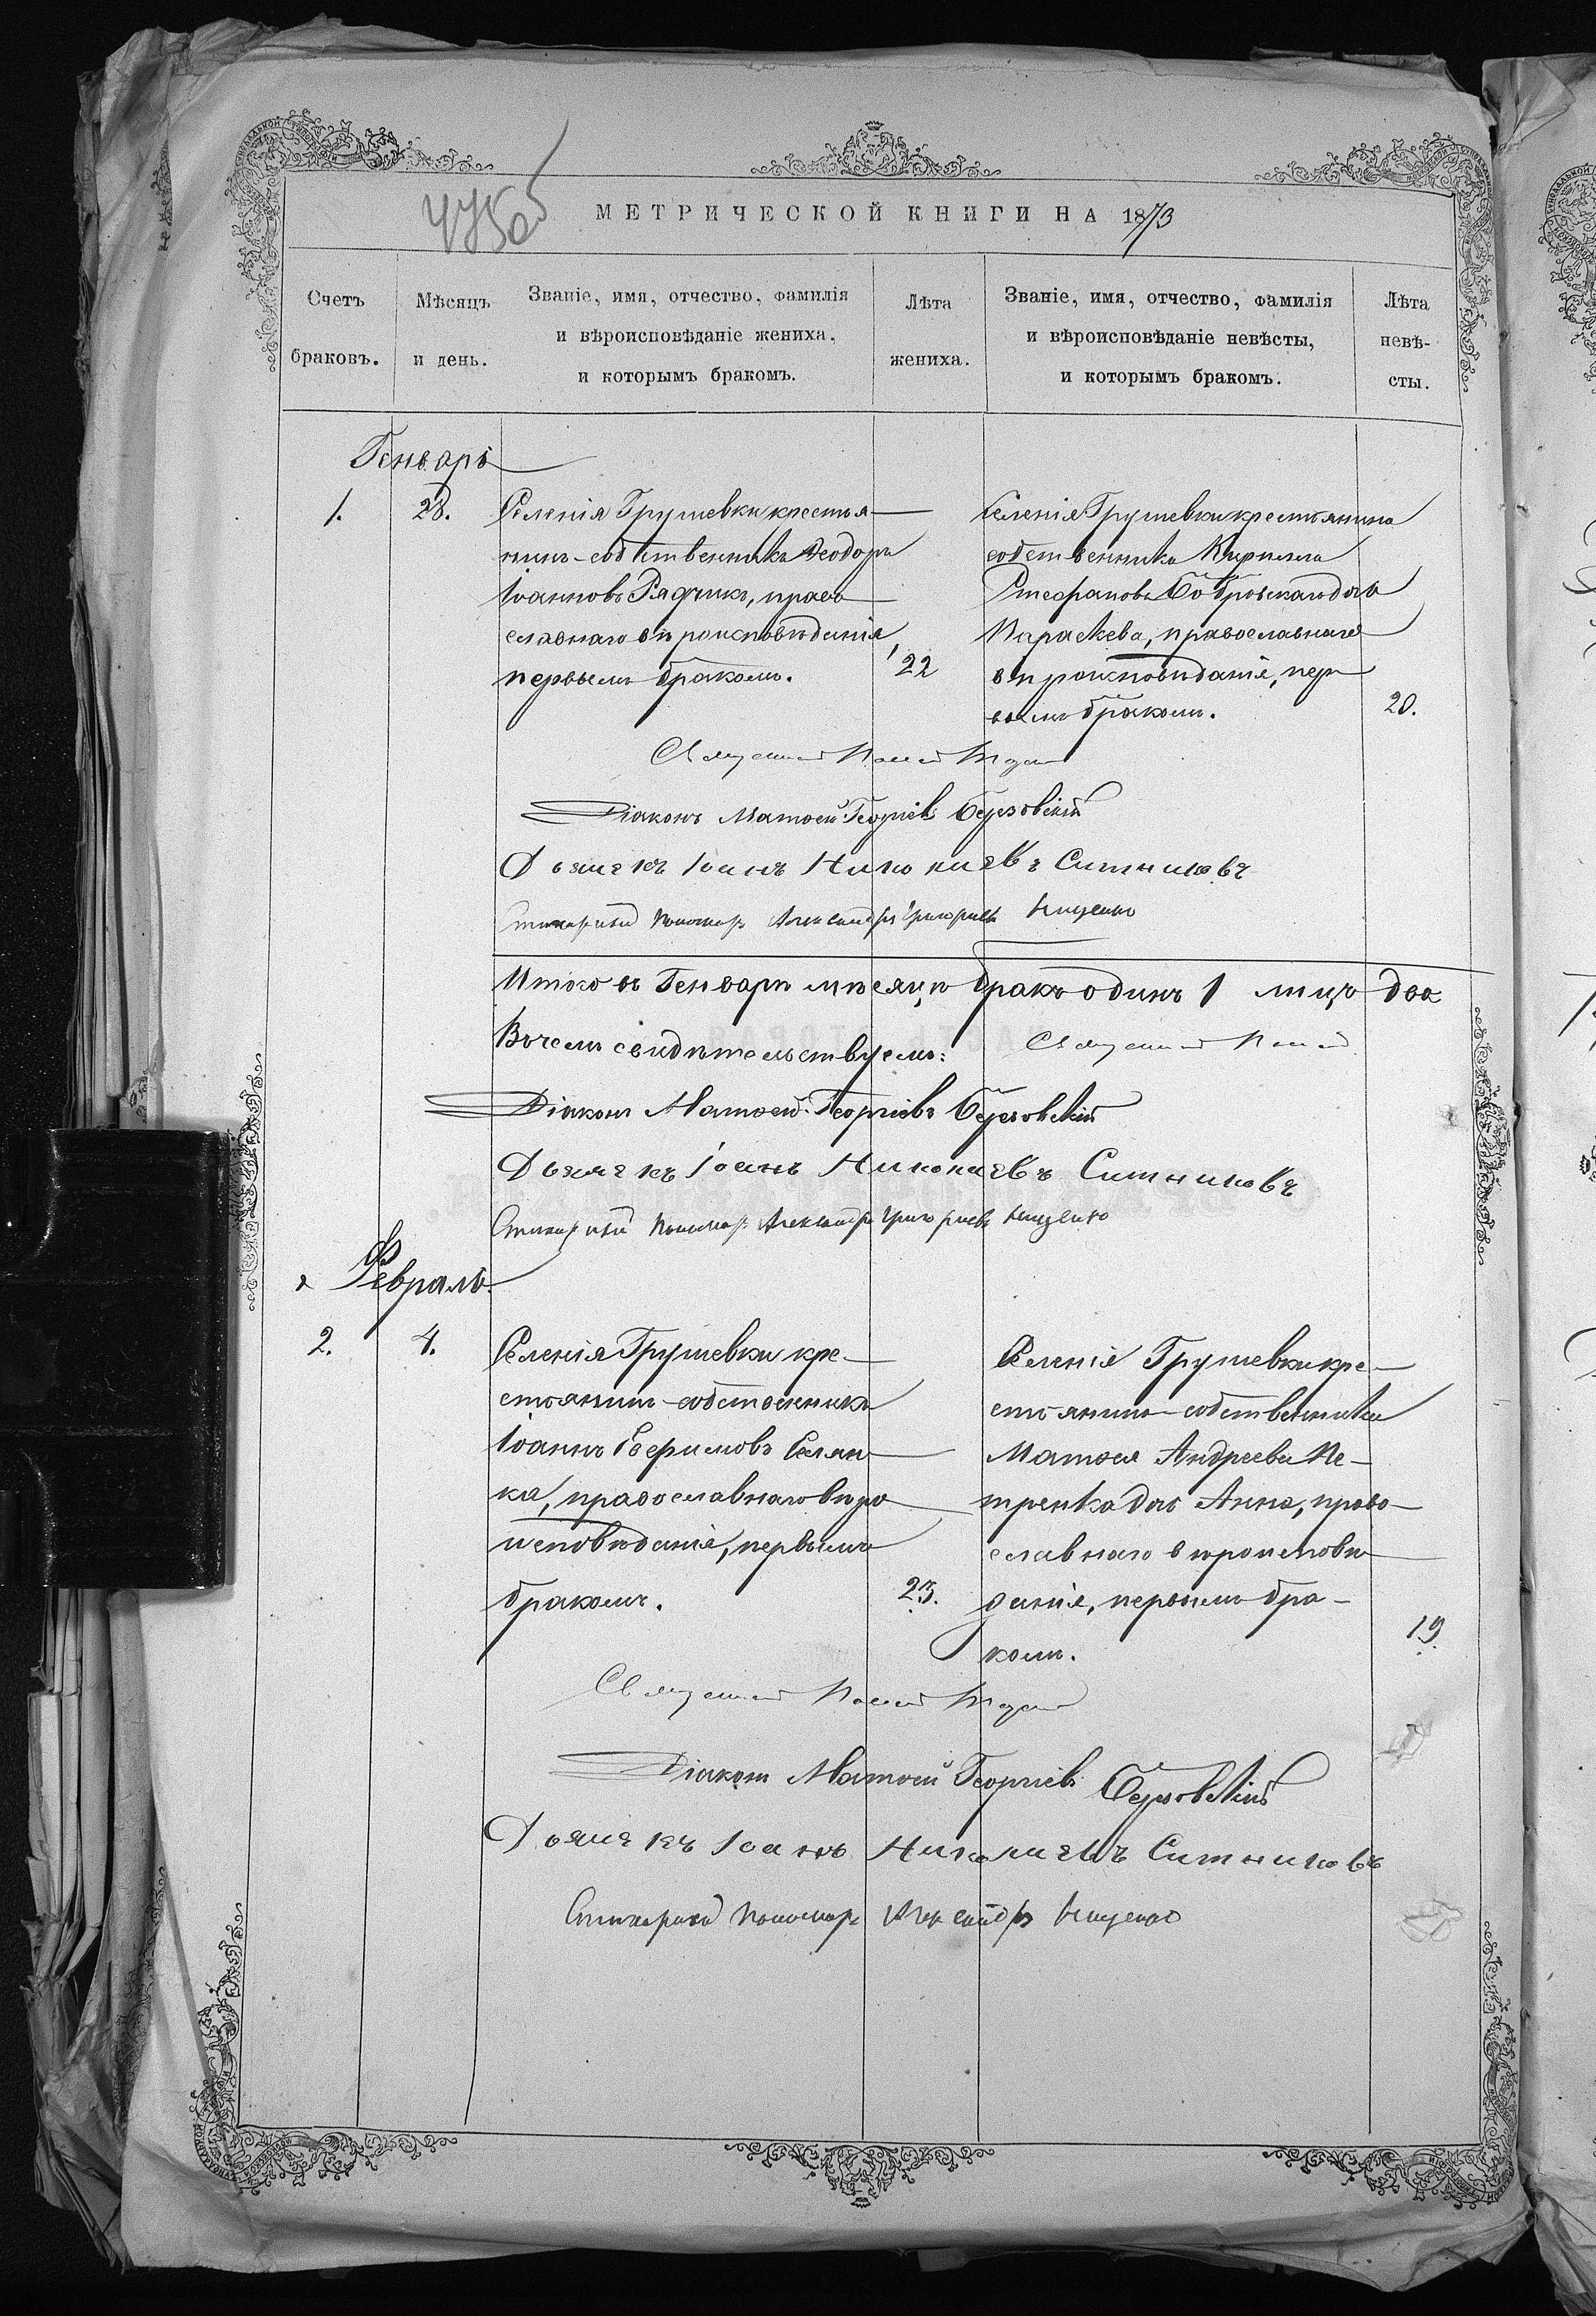 МЕТРИЧЕСКОЙ КНИГИ НА 1873
Счетъ браковъ.
Мѣсяцъ и день.
Званіе, имя, отчество, фамилія
и вѣроисповѣданіе жениха,
и которымъ бракомъ.
Лѣта жениха.
Званіе, имя, отчество, фамилія
и вѣроисповѣданіе невѣсты,
и которымъ бракомъ.
Лѣта невѣ-
сты.
Генварь
1. 28.
Селенія Грушевки крестья-
нинъ-собственникъ Ѳеодоръ
Іоанновъ Радчик, право
славнаго вѣроисповѣданія,
первымъ бракомъ. 22
Селенія Грушевки крестьянина
собственника Кирилла
Стефанова Бобровскаго дочь
Параскева, православнаго
вѣроисповѣданія, пер
вымъ бракомъ. 20.
Священникъ
Діаконъ Матѳей Георгіевъ Березовскій
Дьячекъ Іоанъ Николаевъ Ситниковъ
Стихарный Пономарь Александръ Григорьевъ
Итого въ Генварѣ мѣсяцѣ бракъ одинъ 1 лицъ два
Въ чемъ свидѣтельствуемъ: Священникъ
Діаконъ Матѳей Георгіевъ Березовскій
Дьячекъ Іоанъ Николаевъ Ситниковъ
Стихарный Пономарь Александръ Григорьевъ
Февраль.
2. 4.
Селенія Грушевки кре-
стьянинъ-собственникъ
Іоаннъ Ефимовъ Селян
ка, православнаго вѣро
исповѣданія, первымъ
бракомъ. 23.
Селенія Грушевки кре-
стьянина-собственника
Матѳея Андреева Пе-
тренка дочь Анна, право-
славнаго вѣроисповѣ
данія, первымъ бра-
комъ. 19.
Священникъ
Діаконъ Матѳей Георгіевъ Березовскій
Дьячекъ Іоанъ Николаевъ Ситниковъ
Стихарный Пономарь Александръ